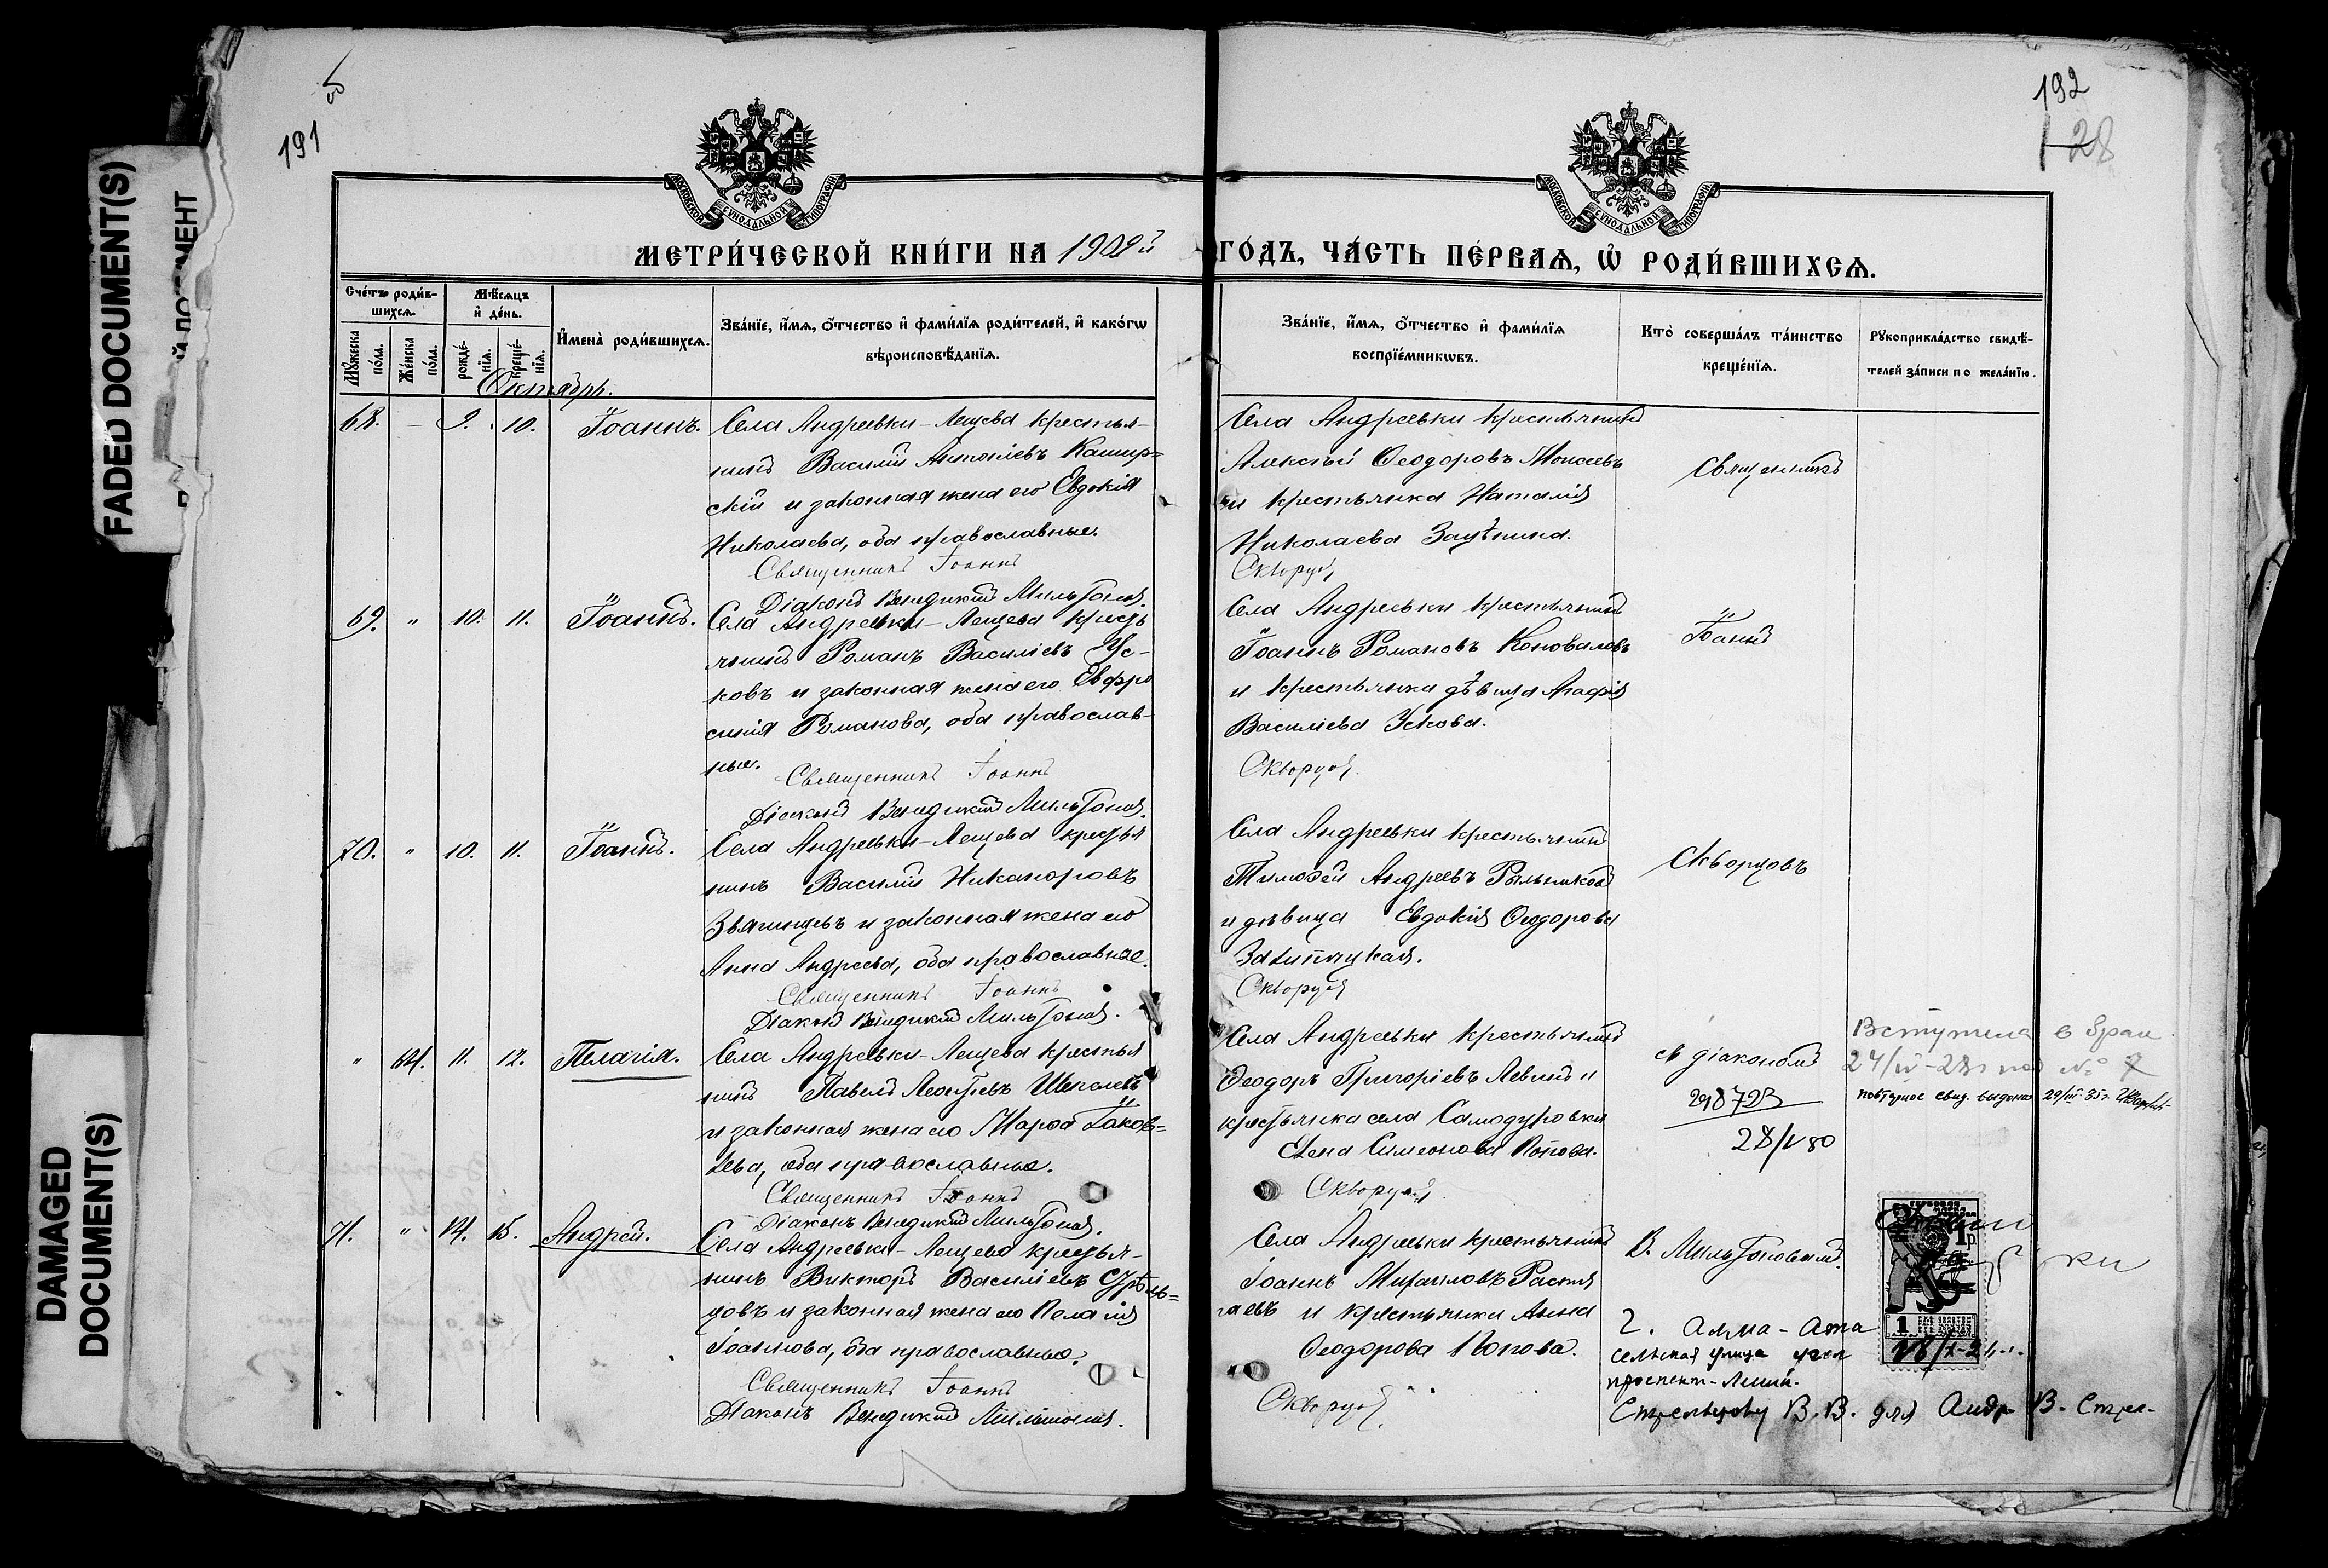 191
192
28
FADED DOCUMENT(S)
DAMAGED DOCUMENT(S)
МОСКОВСКОЙ СѴНОДАЛЬНОЙ ТИПОГРАФІИ
МОСКОВСКОЙ СѴНОДАЛЬНОЙ ТИПОГРАФІИ
МЕТРИ́ЧЕСКОЙ КНИ́ГИ НА 1909й ГО́ДЪ, ЧА́СТЬ ПЕ́РВАѦ, Ѡ҆ РОДИ́ВШИХСѦ.
Сче́тъ роди́в-
шихсѧ.
Мѣ́сѧцъ
и҆ де́нь.
Му́жеска по́ла.
Же́нска по́ла.
рожде́-
нїѧ.
креще́-
нїѧ.
И҆мена̀ роди́вшихсѧ.
Зва́нїе, и҆́мѧ, ѻ҆́тчество и҆ фами́лїѧ роди́телей, и҆ како́гѡ
вѣроисповѣ́данїѧ.
Зва́нїе, и҆́мѧ, ѻ҆́тчество и҆ фами́лїѧ
воспрїе́мникѡвъ.
Кто̀ соверша́лъ та́инство
креще́нїѧ.
Рꙋкоприкла́дство свидѣ́-
телей за́писи по жела́нїю.
Октябрь.
68. – 9. 10. Іоаннъ.
Села Андреевки-Лещева крестья-
нинъ Василій Антоніевъ Кашир=
скій и законная жена его Евдокія
Николаева, оба православные.
Священникъ Іоаннъ
Діаконъ Венедиктъ Мильтонов.
Села Андреевки крестьянинъ
Алексѣй Ѳеодоровъ Моисеевъ
и крестьянка Наталія
Николаева Зацѣпина.
Скворцов
Священникъ
69. " 10. 11. Іоаннъ.
Села Андреевки-Лещева кресть
янинъ Романъ Василіевъ Ус-
ковъ и законная жена его Евфро
синія Романова, оба православ-
ные.
Священникъ Іоаннъ
Діаконъ Венедиктъ Мильтонов.
Села Андреевки крестьянинъ
Іоаннъ Романовъ Коноваловъ
и крестьянка дѣвица Агафія
Василіева Ускова.
Скворцов
Іоаннъ
70. " 10. 11. Іоаннъ.
Села Андреевки-Лещева крестья
нинъ Василій Никаноровъ
Звягинцевъ и законная жена его
Анна Андреева, оба православные.
Священникъ Іоаннъ
Діаконъ Венедиктъ Мильтонов.
Села Андреевки крестьянинъ
Тимоѳей Андреевъ Рыльниковъ
и дѣвица Евдокія Ѳеодорова
Скворцов
Скворцовъ
" 64. 11. 12. Пелагія.
Села Андреевки-Лещева крестья
нинъ Павелъ Леонтіевъ Шепелевъ
и законная жена его Марѳа Іаков=
лева, оба православные.
Священникъ Іоаннъ
Діаконъ Венедиктъ Мильтонов.
Села Андреевки крестьянинъ
Ѳеодоръ Григоріевъ Левинъ и
крестьянка села Самодуровки
Елена Симеонова Попова.
Скворцов
съ діакономъ
298723
28/V 80
Вступила в брак
24/IV-28г под № 7
повторное свид. выдано 29/III-35г.
71. " 14. 15. Андрей.
Села Андреевки-Лещева крестья-
нинъ Викторъ Василіевъ Стрѣль=
цовъ и законная жена его Пелагія
Іоаннова, оба православные.
Священникъ Іоаннъ
Діаконъ Венедиктъ Мильтонов.
Села Андреевки крестьянинъ
Іоаннъ Михаиловъ Растя
гаевъ и крестьянка Анна
Ѳеодорова Попова.
Скворцов
В. Мильтоновымъ.
1р
1
г. Алма-Ата
сельская улица угол
проспект-Лени.
Стрельцову В.В. для Андр В. Стрел-